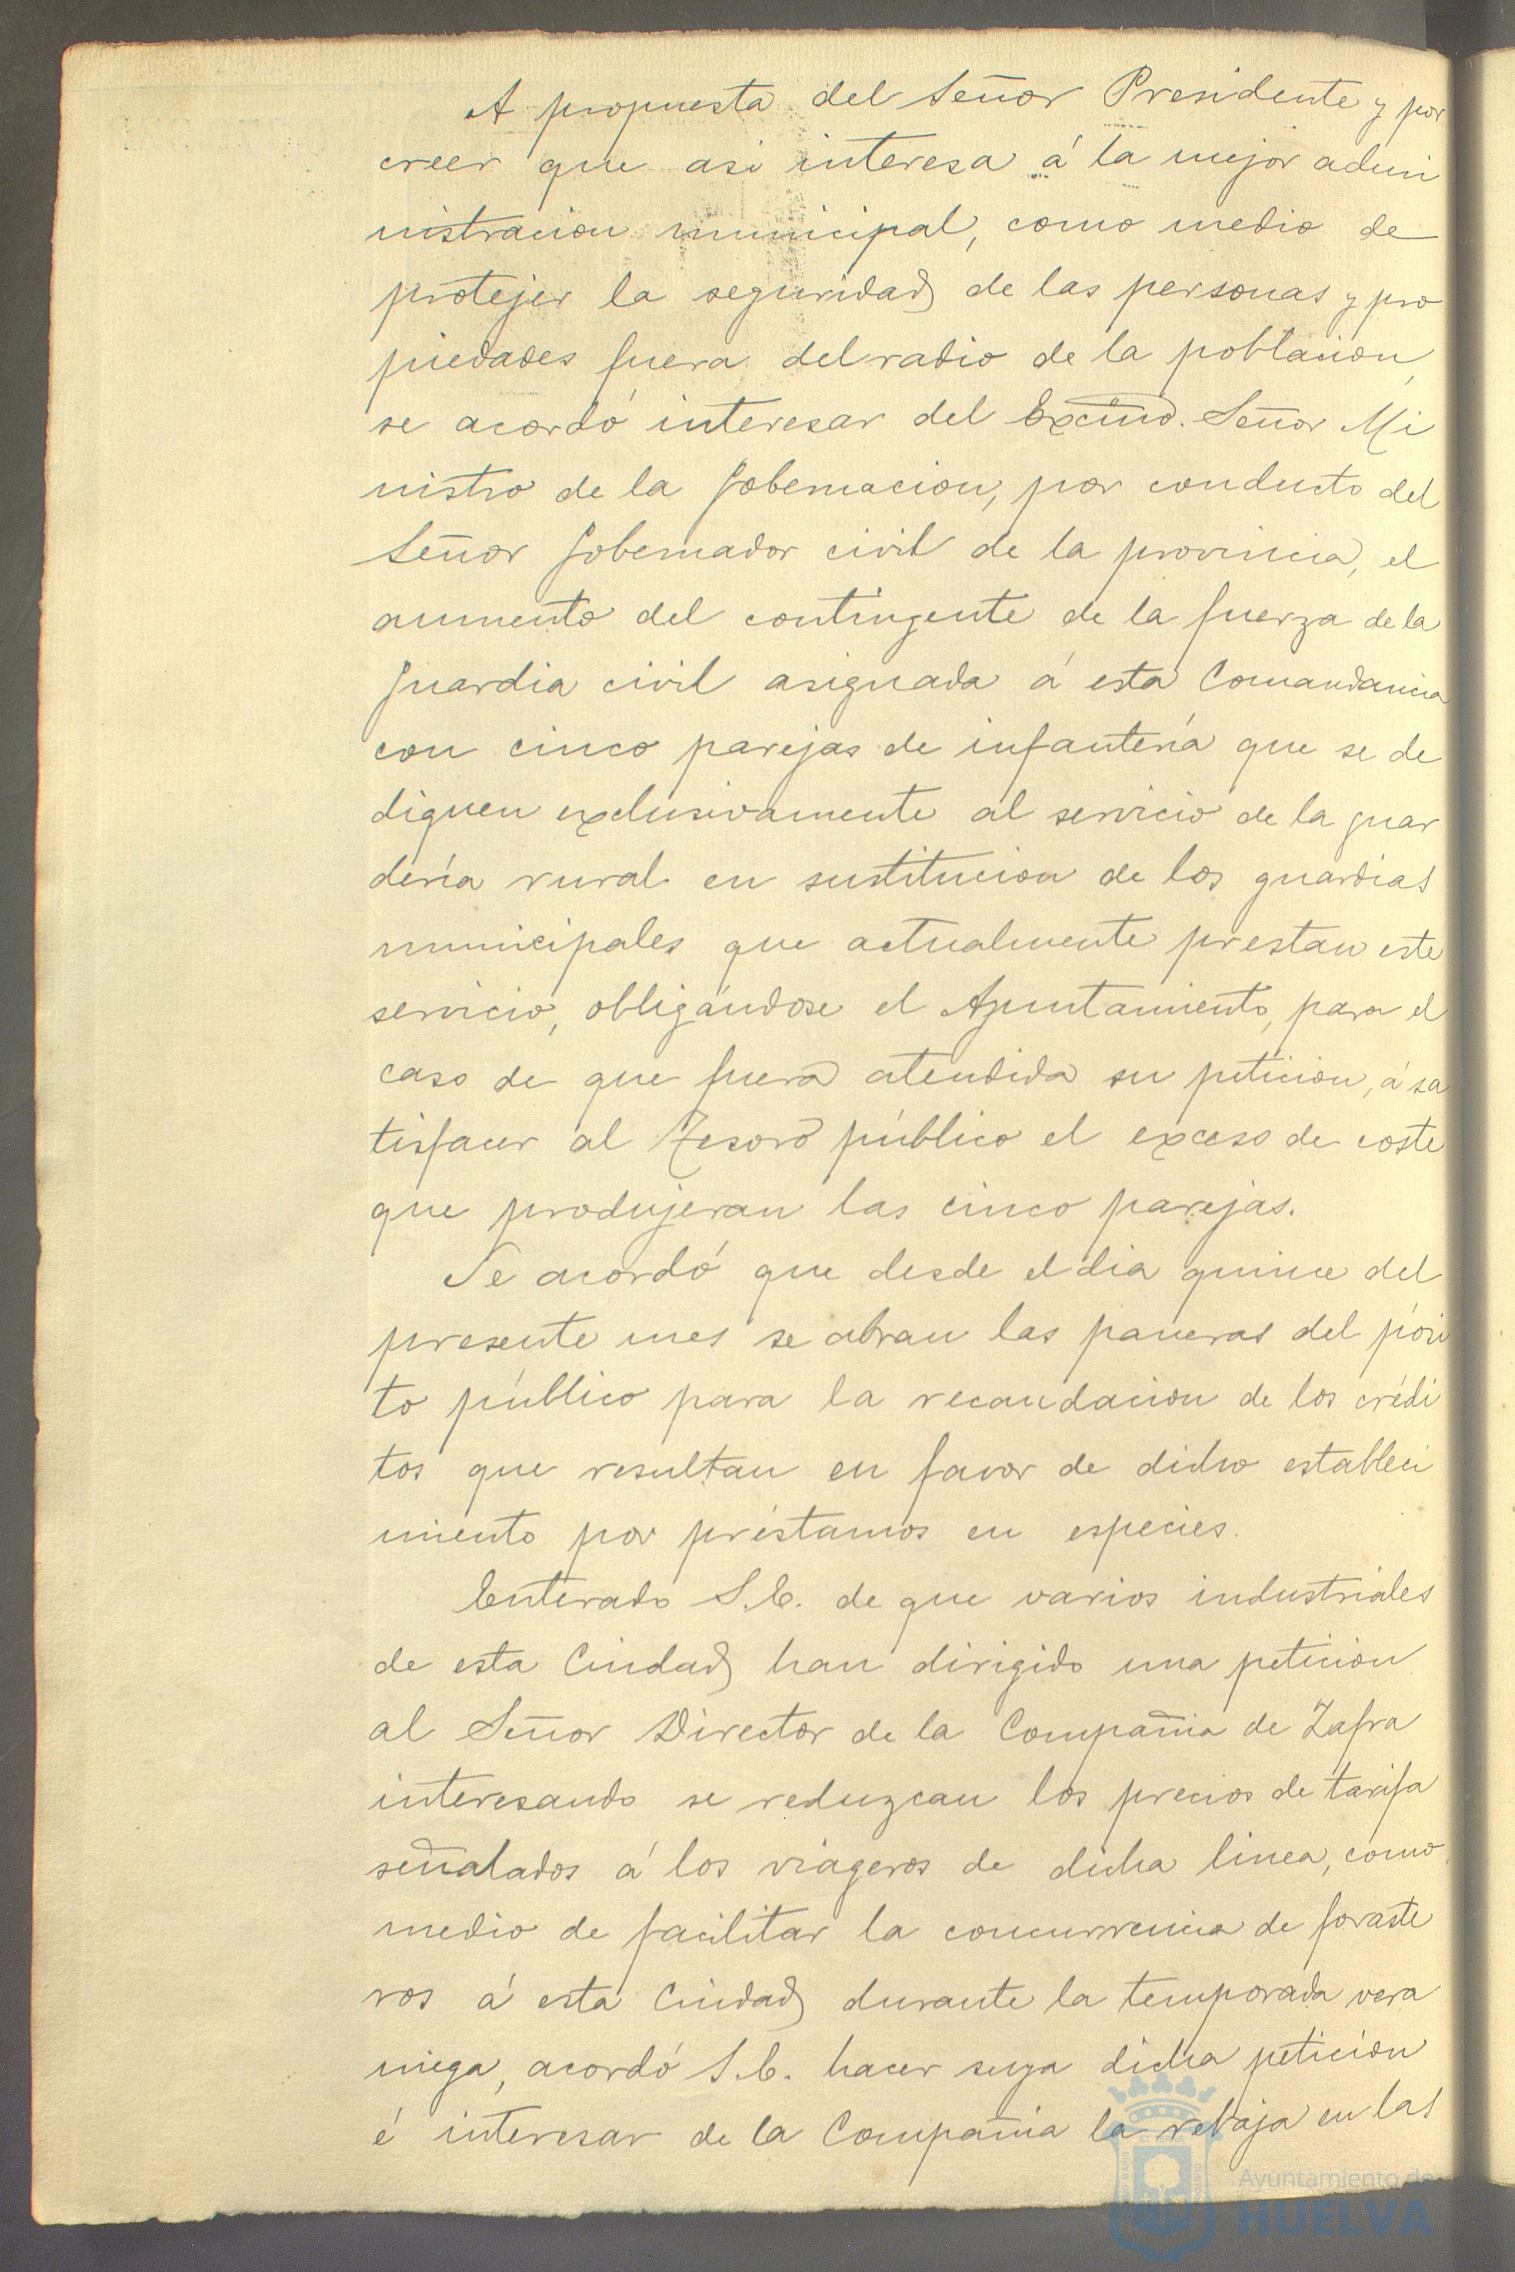 A propuesta del Señor Presidente y por
creer que asi interesa á la mejor admi
nistracion municipal, como medio de
protejer la seguridad de las personas y pro
piedades fuera del radio de la poblacion,
se acordó interesar del Excmo. Señor Mi
nistro de la Gobernacion, por conducto del
Señor Gobernador civil de la provincia, el
aumento del contingente de la fuerza de la
Guardia civil asignada á esta Comandancia
con cinco parejas de infantería que se de
diquen exclusivamente al servicio de la guar
dería rural en sustitucion de los guardias
municipales que actualmente prestan este
servicio, obligándose el Ayuntamiento, para el
caso de que fuera atendida su peticion, á sa
tisfacer al Tesoro público el exceso de coste
que produjeran las cinco parejas.
Se acordó que desde el dia quince del
presente mes se abran las paneras del pósi
to público para la recaudacion de los crédi
tos que resultan en favor de dicho estableci
miento por préstamos en especies.
Enterado S.E. de que varios industriales
de esta Ciudad han dirigido una peticion
al Señor Director de la Compañia de Zafra
interesando se reduzcan los precios de tarifa
señalados á los viageros de dicha linea, como
medio de facilitar la concurrencia de foraste
ros á esta Ciudad durante la temporada vera
niega, acordó S.E. hacer suya dicha peticion
é interesar de la Compañia la rebaja en las
Ayuntamiento de
HUELVA